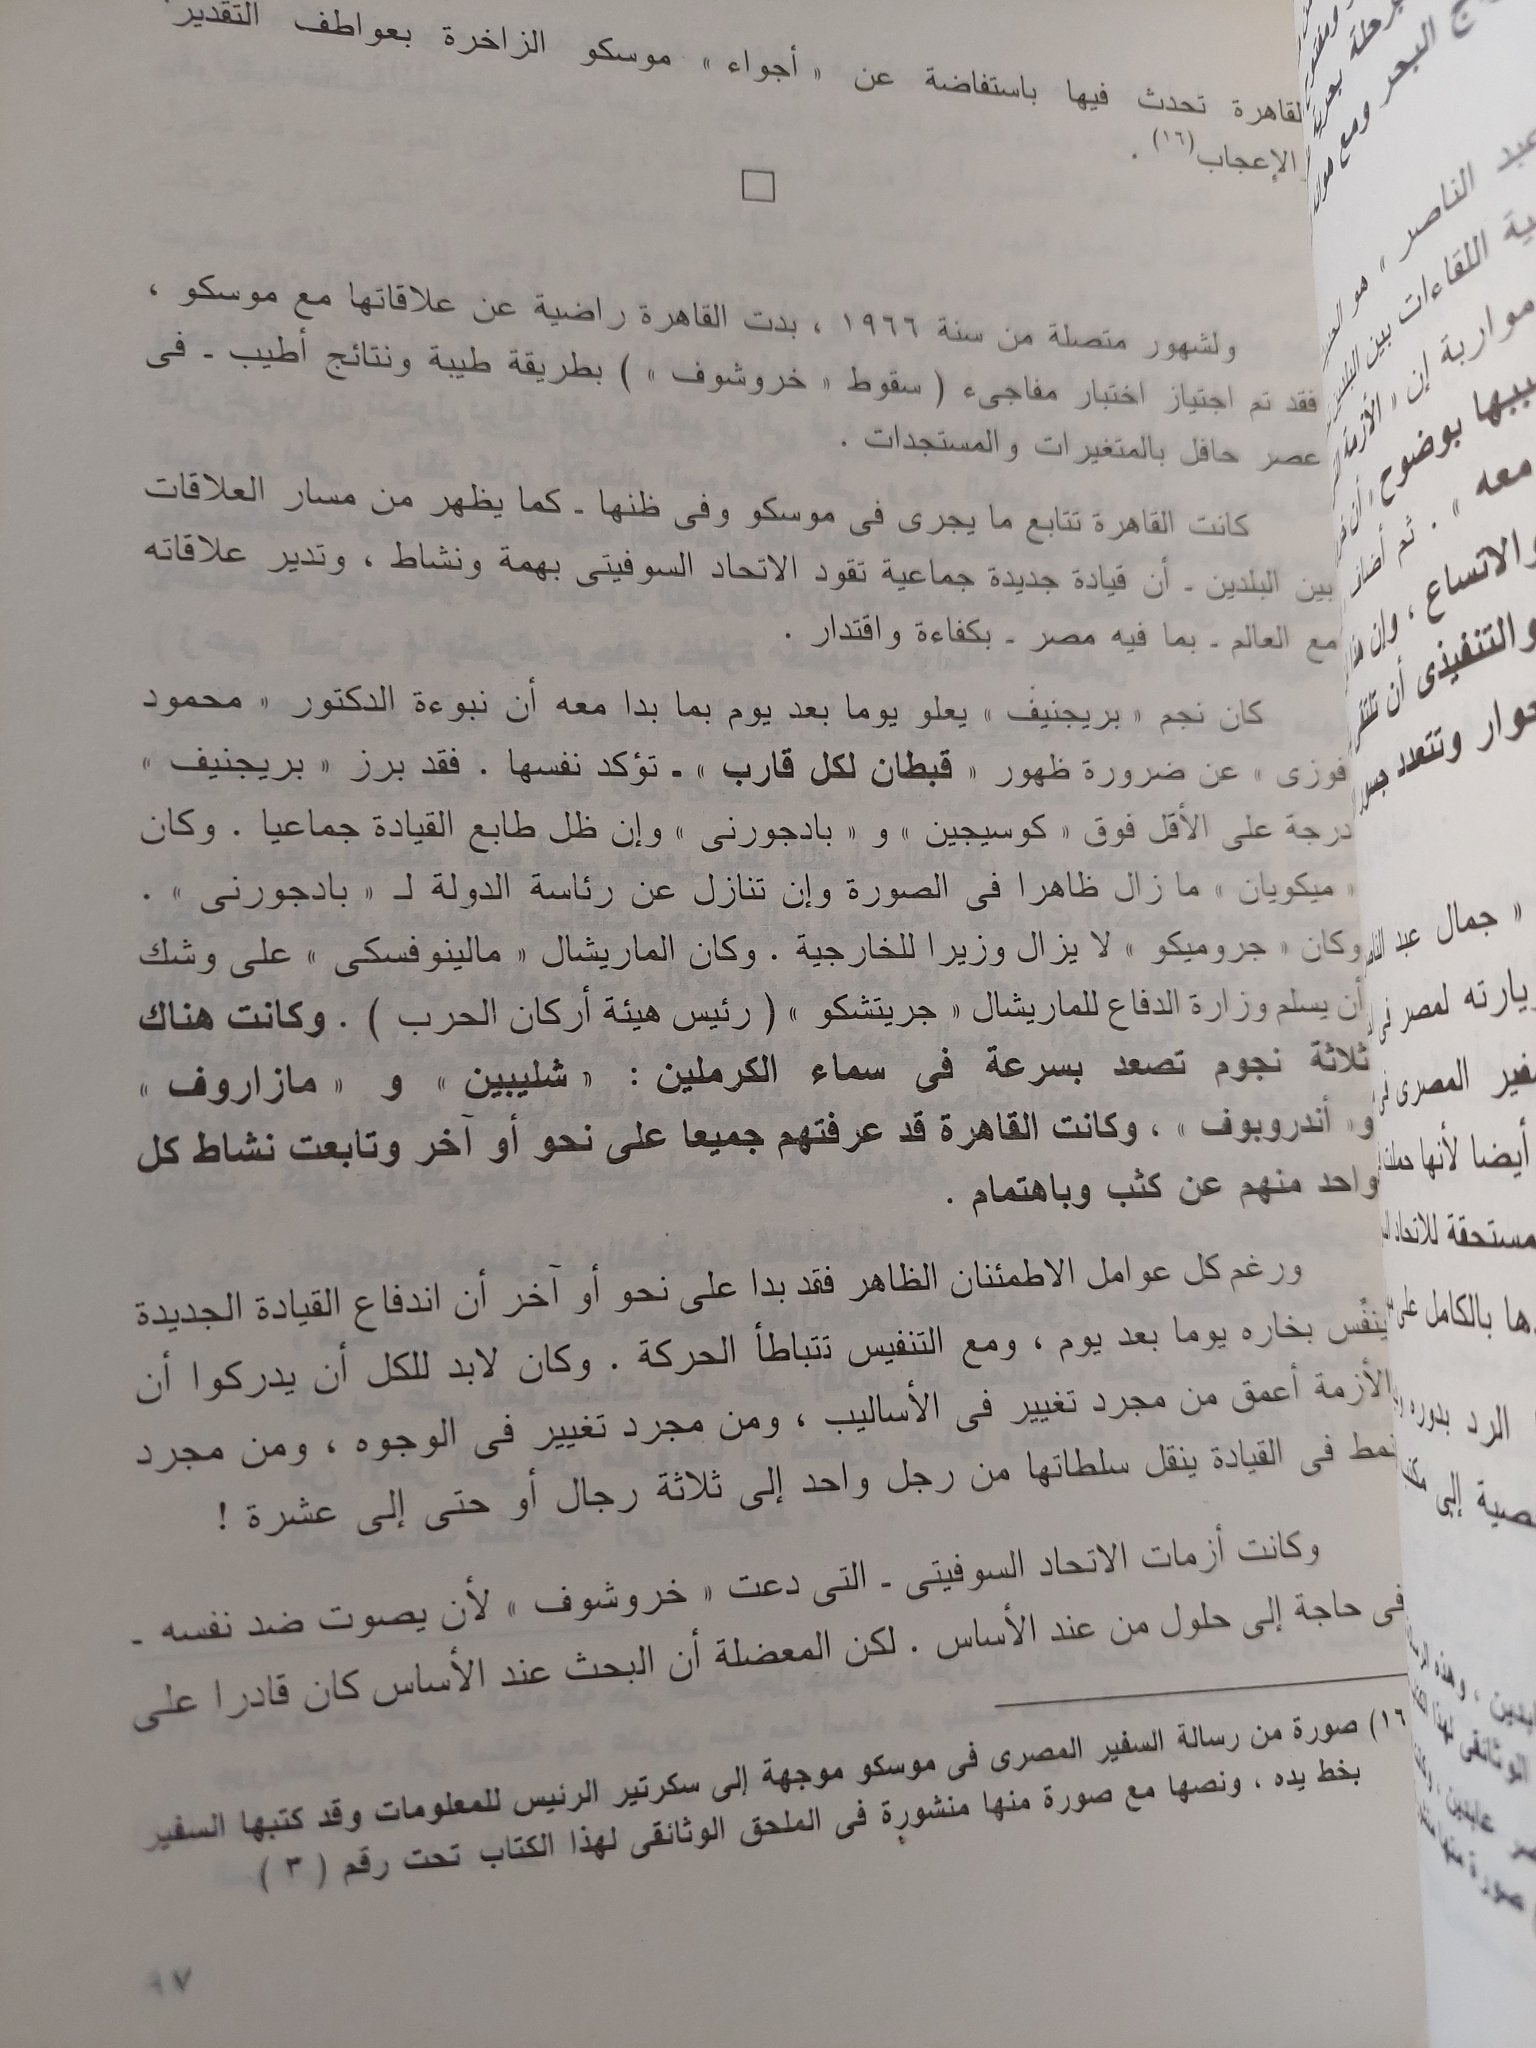 القاهرة تحدث فيها باستفاضة عن « أجواء » موسكو الزاخرة بعواطف التقدير
الإعجاب(١٦) .
ولشهور متصلة من سنة ١٩٦٦ ، بدت القاهرة راضية عن علاقاتها مع موسكو ،
فقد تم اجتياز اختبار مفاجىء ( سقوط « خروشوف » ) بطريقة طيبة ونتائج أطيب ـ فى
عصر حافل بالمتغيرات والمستجدات .
كانت القاهرة تتابع ما يجرى فى موسكو وفى ظنها ـ كما يظهر من مسار العلاقات
بين البلدين ـ أن قيادة جديدة جماعية تقود الاتحاد السوفيتى بهمة ونشاط ، وتدير علاقاته
مع العالم ـ بما فيه مصر ـ بكفاءة واقتدار .
كان نجم « بريجنيف » يعلو يوما بعد يوم بما بدا معه أن نبوءة الدكتور « محمود
فوزى » عن ضرورة ظهور « قبطان لكل قارب » ـ تؤكد نفسها . فقد برز « بريجنيف »
درجة على الأقل فوق « كوسيجين » و « بادجورنى » وإن ظل طابع القيادة جماعيا . وكان
« ميكويان » ما زال ظاهرا فى الصورة وإن تنازل عن رئاسة الدولة لـ « بادجورنى » .
وكان « جروميكو » لا يزال وزيرا للخارجية . وكان الماريشال « مالينوفسكى » على وشك
أن يسلم وزارة الدفاع للماريشال « جريتشكو » ( رئيس هيئة أركان الحرب ) . وكانت هناك
ثلاثة نجوم تصعد بسرعة فى سماء الكرملين : « شليبين » و « مازاروف »
و« أندروبوف » ، وكانت القاهرة قد عرفتهم جميعا على نحو أو آخر وتابعت نشاط كل
واحد منهم عن كثب وباهتمام .
ورغم كل عوامل الاطمئنان الظاهر فقد بدا على نحو أو آخر أن اندفاع القيادة الجديدة
ينفّس بخاره يوما بعد يوم ، ومع التنفيس تتباطأ الحركة . وكان لابد للكل أن يدركوا أن
الأزمة أعمق من مجرد تغيير فى الأساليب ، ومن مجرد تغيير فى الوجوه ، ومن مجرد
نمط فى القيادة ينقل سلطاتها من رجل واحد إلى ثلاثة رجال أو حتى إلى عشرة !
وكانت أزمات الاتحاد السوفيتى ـ التى دعت « خروشوف » لأن يصوت ضد نفسه ـ
فى حاجة إلى حلول من عند الأساس . لكن المعضلة أن البحث عند الأساس كان قادرا على
١٦) صورة من رسالة السفير المصرى فى موسكو موجهة إلى سكرتير الرئيس للمعلومات وقد كتبها السفير
بخط يده ، ونصها مع صورة منها منشورة فى الملحق الوثائقى لهذا الكتاب تحت رقم ( ٣ )
٩٧
البحر ومع
عبد الناصر » هو
اللقاءات بين
مواربة إن « الأزمة
بوضوح أن
معه » . ثم أضاف
والاتساع ، وإن هذا
والتنفيذى أن تلتقى
حوار وتتعدد
« جمال عبد
زيارته لمصر فى
السفير المصرى فى
أيضا لأنها حملت
مستحقة للاتحاد
بالكامل على
الرد بدوره
إلى